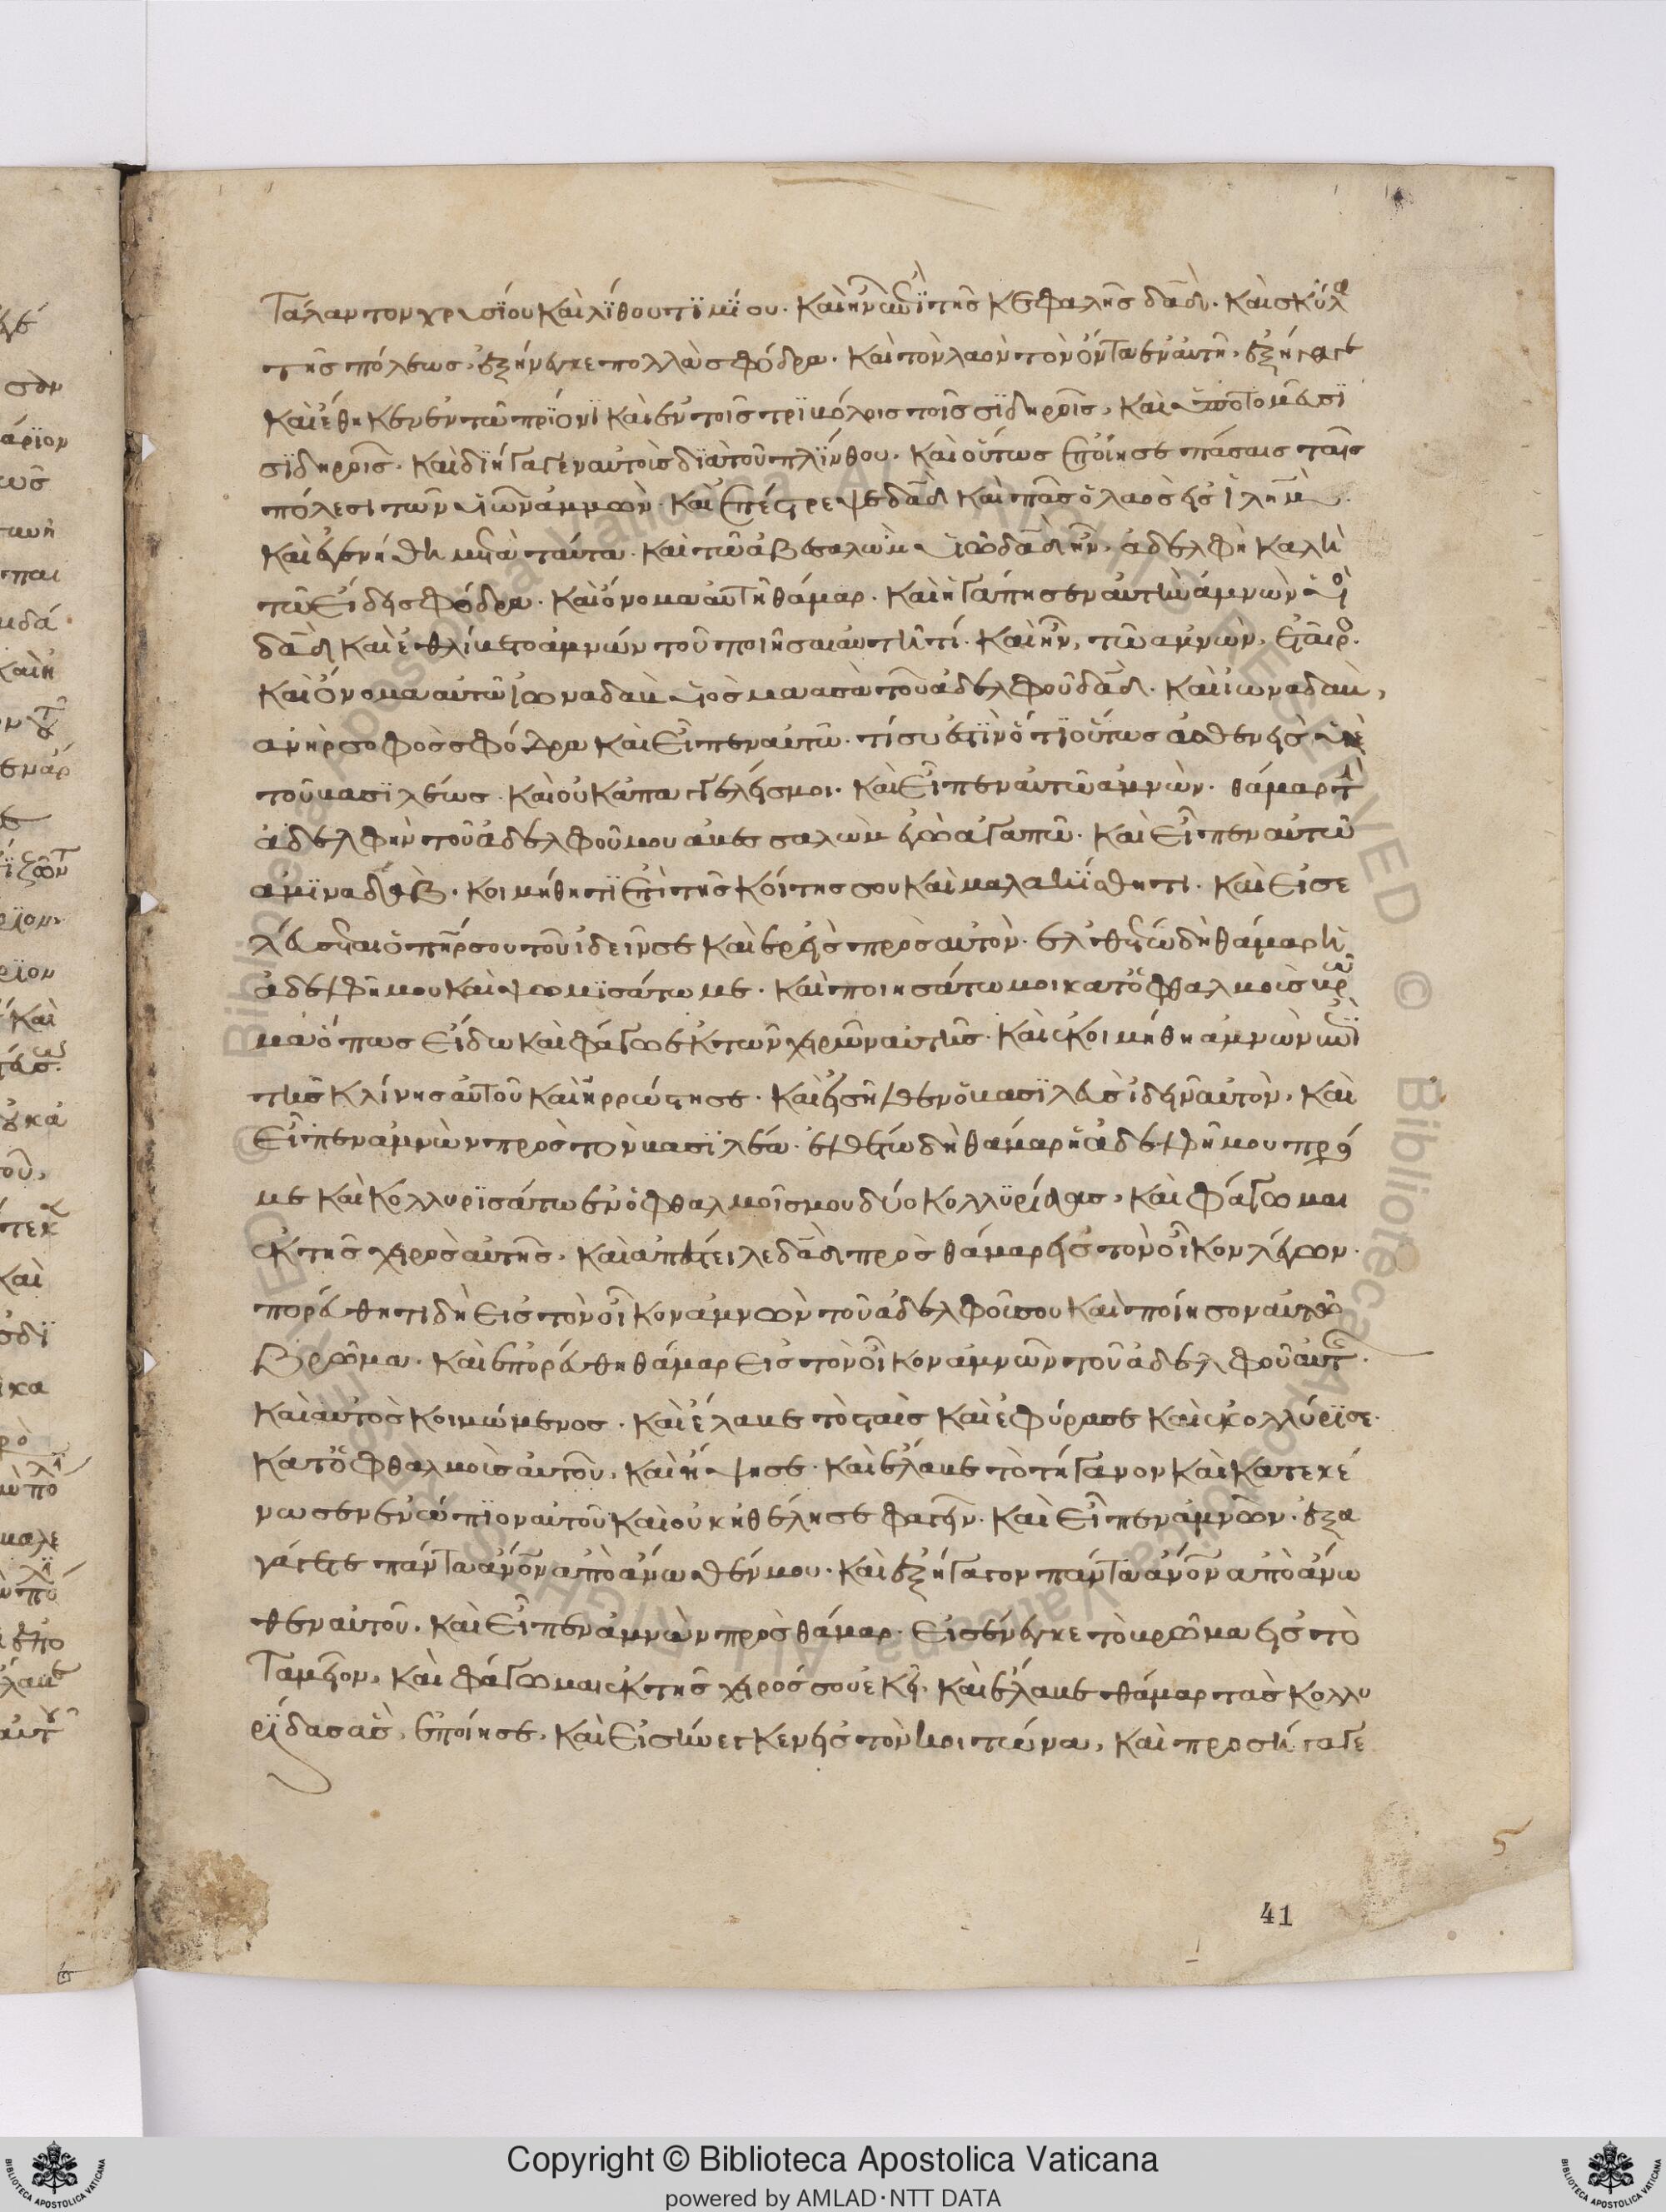 τάλαντον χρυσίου καὶ λίθου τιμίου· καὶ ἦν ἐπὶ τῆς κεφαλῆς δᾱδ· καὶ σκῦλα
τῆς πόλεως, ἐξήνεγκε πολλὰ σφόδρα· καὶ τὸν λαὸν τὸν ὄντα ἐν αὐτῆ, ἐξήγαγε
καὶ ἔθηκεν ἐν τῶ πρίονι καὶ ἐν τοῖς τριβόλοις τοῖς σιδηροῖς, καὶ ὑποτομεῦσι
σιδηροῖς· καὶ διήγαγεν αὐτοὺς διὰ τοῦ πλίνθου· καὶ οὕτως ἐποίησε πάσαις ταῖς
πόλεσι τῶν υἱῶν ἀμμών· καὶ ἐπέστρεψε δᾱδ καὶ πᾶς ὁ λαὸς εἰς ἰλημ
καὶ ἐγενήθη μετὰ ταῦτα· καὶ τῶ ἀβεσαλὼμ υἱῶ δᾱδ ἦν, ἀδελφὴ καλὴ
τῶ εἴδει σφόδρα· καὶ ὄνομα αὐτῆ θάμαρ· καὶ ἠγάπησεν αὐτὴν ἀμνὼν υἱὸ
δᾱδ καὶ ἐθλίβετο ἀμνών τοῦ ποιῆσαι αὐτῆ τί· καὶ ἦν, τῶ ἀμνὼν, ἑταῖρο·
καὶ ὄνομα αὐτῶ ἰωναδὰβ υἱὸς σαμαὰ τοῦ ἀδελφοῦ δᾱδ· καὶ ἰωναδὰβ,
ἀνὴρ σοφὸς σφόδρα καὶ εἶπεν αὐτῶ· τί σὺ ἐστὶν ὅτι οὕτως ἀσθενεὶς υἱὲ
τοῦ βασιλέως· καὶ οὐκ ἀπαγγελεῖς μοι· καὶ εἶπεν αὐτῶ ἀμνὼν· θάμαρ τὴ
ἀδελφὴν τοῦ ἀδελφοῦ μου ἀβεσσαλὼμ ἐγὼ ἀγαπῶ· καὶ εἶπεν αὐτῶ
ἀμιναδάβ· κοιμήθητι ἐπὶ τῆς κοίτης σου καὶ μαλακίσθητι· καὶ εἰσε
λεύσεται ὁ πηρ σου τοῦ ἰδεῖν σε καὶ ἐρεῖς πρὸς αὐτὸν· ἐλθέτω δὴ θάμαρ ἡ
ἀδελφή μου καὶ ψωμισάτω με· καὶ ποιησάτω μοι κατ' ὀφθαλμοὺς βρῶ
μα ὅπως εἴδω καὶ φάγω ἐκ τῶν χειρῶν αὐτῆς· καὶ ἐκοιμήθη ἀμνὼν ἐπὶ
τῆς κλίνης αὐτοῦ καὶ ἠρρώστησε· καὶ εἰσῆλθεν ὁ βασιλεὺς ἰδεῖν αὐτὸν, καὶ
εἶπεν ἀμνὼν πρὸς τὸν βασιλέα· ἐλθέτω δὴ θάμαρ ἡ ἀδελφή μου πρός
με καὶ κολλυρισάτω ἐν ὀφθαλμοῖς μου δύο κολλυρίδας, καὶ φάγωμαι
ἐκ τῆς χειρὸς αὐτῆς, καὶ ἀπέστειλε δᾱδ πρὸς θάμαρ εἰς τὸν οἶκον λέγων·
πορεύθητι δὴ εἰς τὸν οἶκον ἀμνὼν τοῦ ἀδελφοῦ σου καὶ ποίησον αὐτῶ
βρῶμα· καὶ ἐπορεύθη θάμαρ εἰς τὸν οἶκον ἀμνὼν τοῦ ἀδελφοῦ αὐτῆ·
καὶ αὐτὸς κοιμώμενος· καὶ ἔλαβε τὸ σταὶς καὶ ἐφύρασε καὶ ἐκολλύρισε·
κατ' ὀφθαλμοὺς αὐτοῦ, καὶ ἥψησε· καὶ ἔλαβε τὸ τήγανον καὶ κατεκέ
νωσεν ἐνώπιον αὐτοῦ καὶ οὐκ ἠθέλησε φαγεῖν· καὶ εἶπεν ἀμνὼν· ἐξα
γάγετε πάντα ἀνον ἀπὸ ἄνωθέν μου· καὶ ἐξήγαγον πάντα ἀνον ἀπὸ ἄνω
θεν αὐτοῦ, καὶ εἶπεν ἀμνὼν πρὸς θάμαρ· εἰσένεγκε τὸ βρῶμα εἰς τὸ
ταμεῖον, καὶ φάγωμαι ἐκ τῆς χειρός σου ἐκεῖ, καὶ ἔλαβε θάμαρ τὰς κολλυ
ρίδας ἃς, ἐποίησε, καὶ εἰσήνεγκεν εἰς τὸν κοιτῶνα, καὶ προσήγαγε
41
Copyright © Biblioteca Apostolica Vaticana
powered by AMLAD·NTT DATA